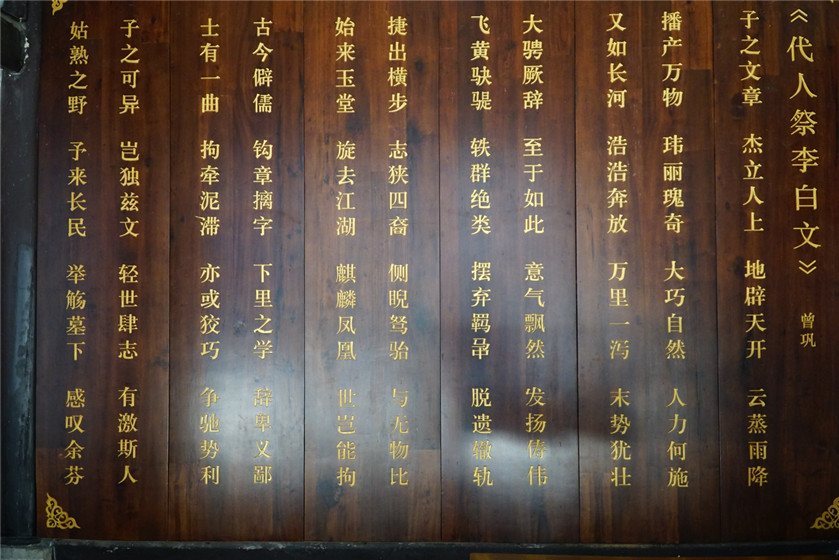 《代人祭李白文》
曾巩
子之文章 杰立人上 地辟天开 云蒸雨降
播产万物 玮丽瑰奇 大巧自然 人力何施
又如长河 浩浩奔放 万里一泻 末势犹壮
大骋厥辞 至于如此 意气飘然 发扬俦伟
飞黄驶騠 轶群绝类 摆弃羁馽 脱遗辙轨
捷出横步 志狭四裔 侧睨驽骀 与无物比
始来玉堂 旋去江湖 麒麟凤凰 世岂能拘
古今僻儒 钩章摛字 下里之学 辞卑义鄙
士有一曲 拘牵泥滞 亦或狡巧 争驰势利
子之可异 岂独兹文 轻世肆志 有激斯人
姑熟之野 予来长民 举觞墓下 感叹余芬